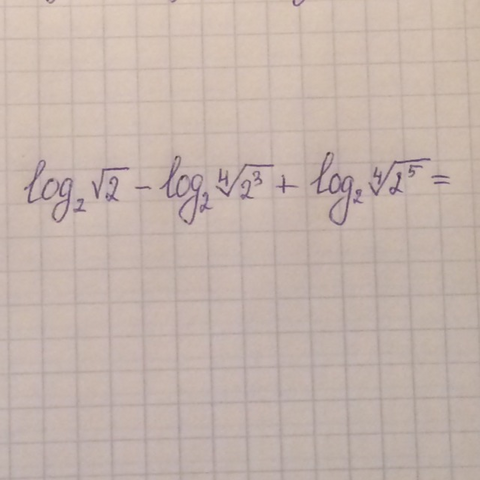 log₂√2 − log₂∜2³ + log₂∜2⁵ =